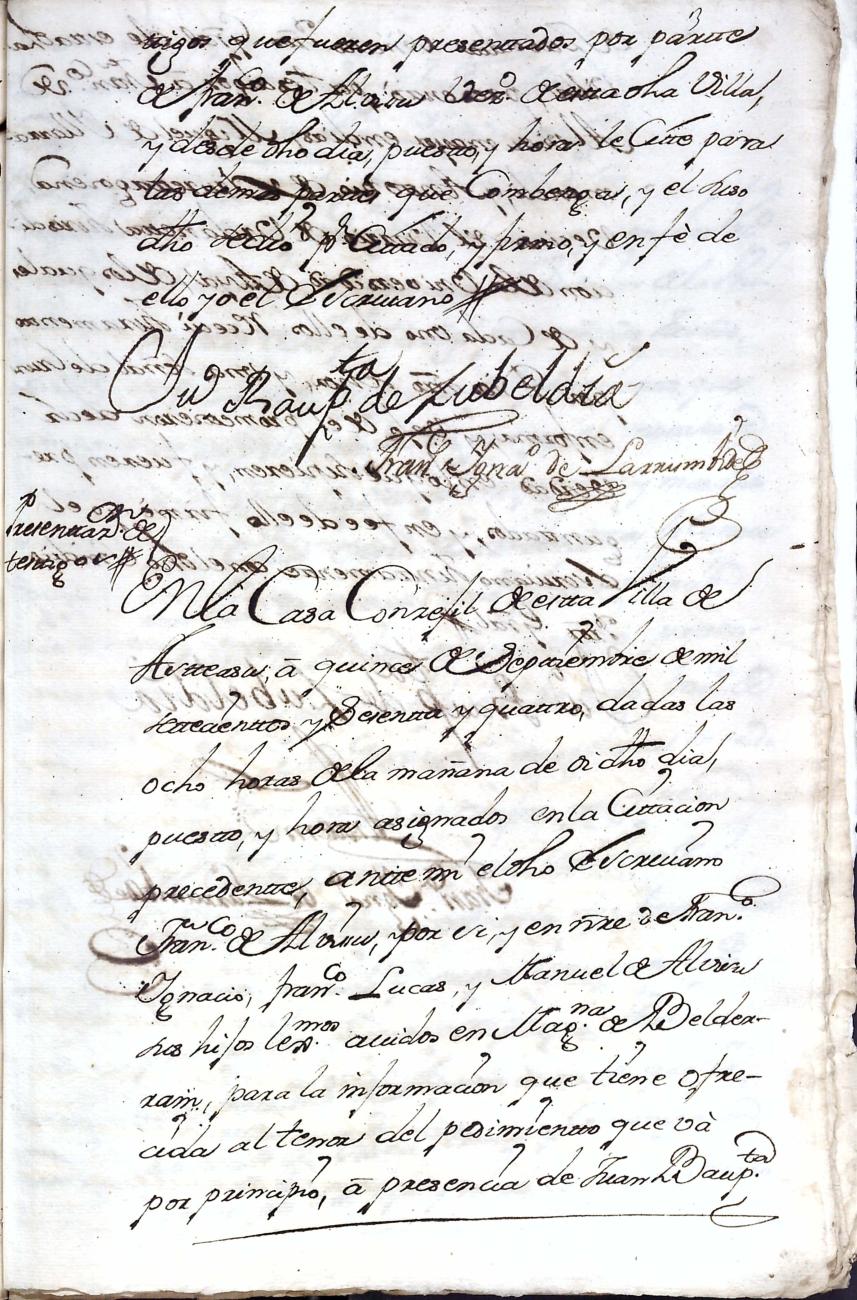 tigos que fueren presentados por partte
de Fran.co de Alviru Vez.o de esta dha Villa,
y desde dho dia, puesto, y hora le Cite para
las demas partes que Combenga, y el suso
dho se dio p.r Cittado, y firmo, y en fè de
ello yo el Escriuano
Ju.n Baup.ta de Zubeldia
Fran.co Igna.o de Larrumbide
Presentaz.on de
testigos
En la Casa Conzejil de esta Villa de
Asteasu, à quince de Septiembre de mil
settecienttos y Sesenta y quattro, dadas las
ocho horas de la mañana de oi dho dia,
puestto, y hora asignados en la Cittacion
precedentte, antte mi el dho Escriuano
Fran.co de Alviru, por si, y en nre de Fran.co
Ignacio, Fran.co Lucas, y Manuel de Alviru
sus hijos lex.mos auidos en Mag.na de Belder-
rain, para la informacion que tiene ofre-
cida al tenor del pedimientto que và
por principio, à presencia de Juan Baup.ta